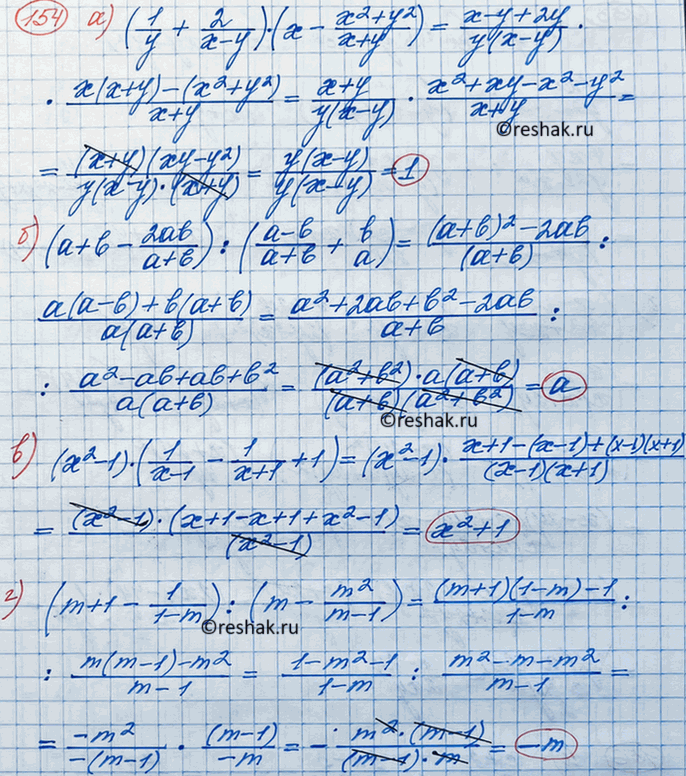 154 а) (1/y + 2/(x-y)) · (x - (x²+y²)/(x+y)) = (x-y+2y)/(y(x-y)) ·
· (x(x+y)-(x²+y²))/(x+y) = (x+y)/(y(x-y)) · (x²+xy-x²-y²)/(x+y) =
©reshak.ru
= ((x+y)(xy-y²))/(y(x-y)·(x+y)) = (y(x-y))/(y(x-y)) = 1
б) (a+b - 2ab/(a+b)) : ((a-b)/(a+b) + b/a) = ((a+b)²-2ab)/((a+b)) :
(a(a-b)+b(a+b))/(a(a+b)) = (a²+2ab+b²-2ab)/(a+b) :
: (a²-ab+ab+b²)/(a(a+b)) = ((a²+b²)·a(a+b))/((a+b)(a²+b²)) = a
©reshak.ru
в) (x²-1)·(1/(x-1) - 1/(x+1) + 1) = (x²-1)·(x+1-(x-1)+(x-1)(x+1))/((x-1)(x+1))
= ((x²-1)·(x+1-x+1+x²-1))/((x²-1)) = x²+1
г) (m+1 - 1/(1-m)) : (m - m²/(m-1)) = ((m+1)(1-m)-1)/(1-m) :
©reshak.ru
: (m(m-1)-m²)/(m-1) = (1-m²-1)/(1-m) : (m²-m-m²)/(m-1) =
= (-m²)/(-(m-1)) · ((m-1))/(-m) = - (m²·(m-1))/((m-1)·m) = -m